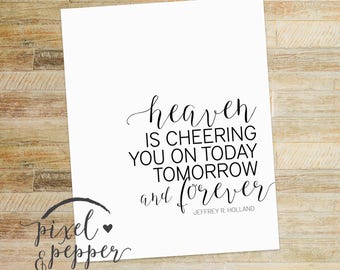 heaven
IS CHEERING
YOU ON TODAY
TOMORROW
and forever
JEFFREY R. HOLLAND
pixel
& pepper